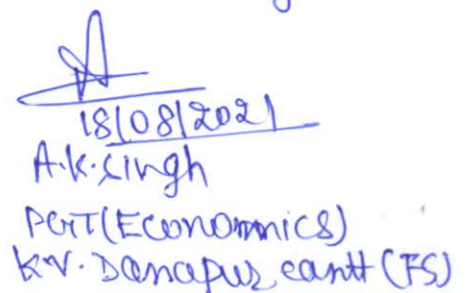 18/08/2021
A.K. Singh
PGT(Economnics)
KV. Danapur cantt (FS)